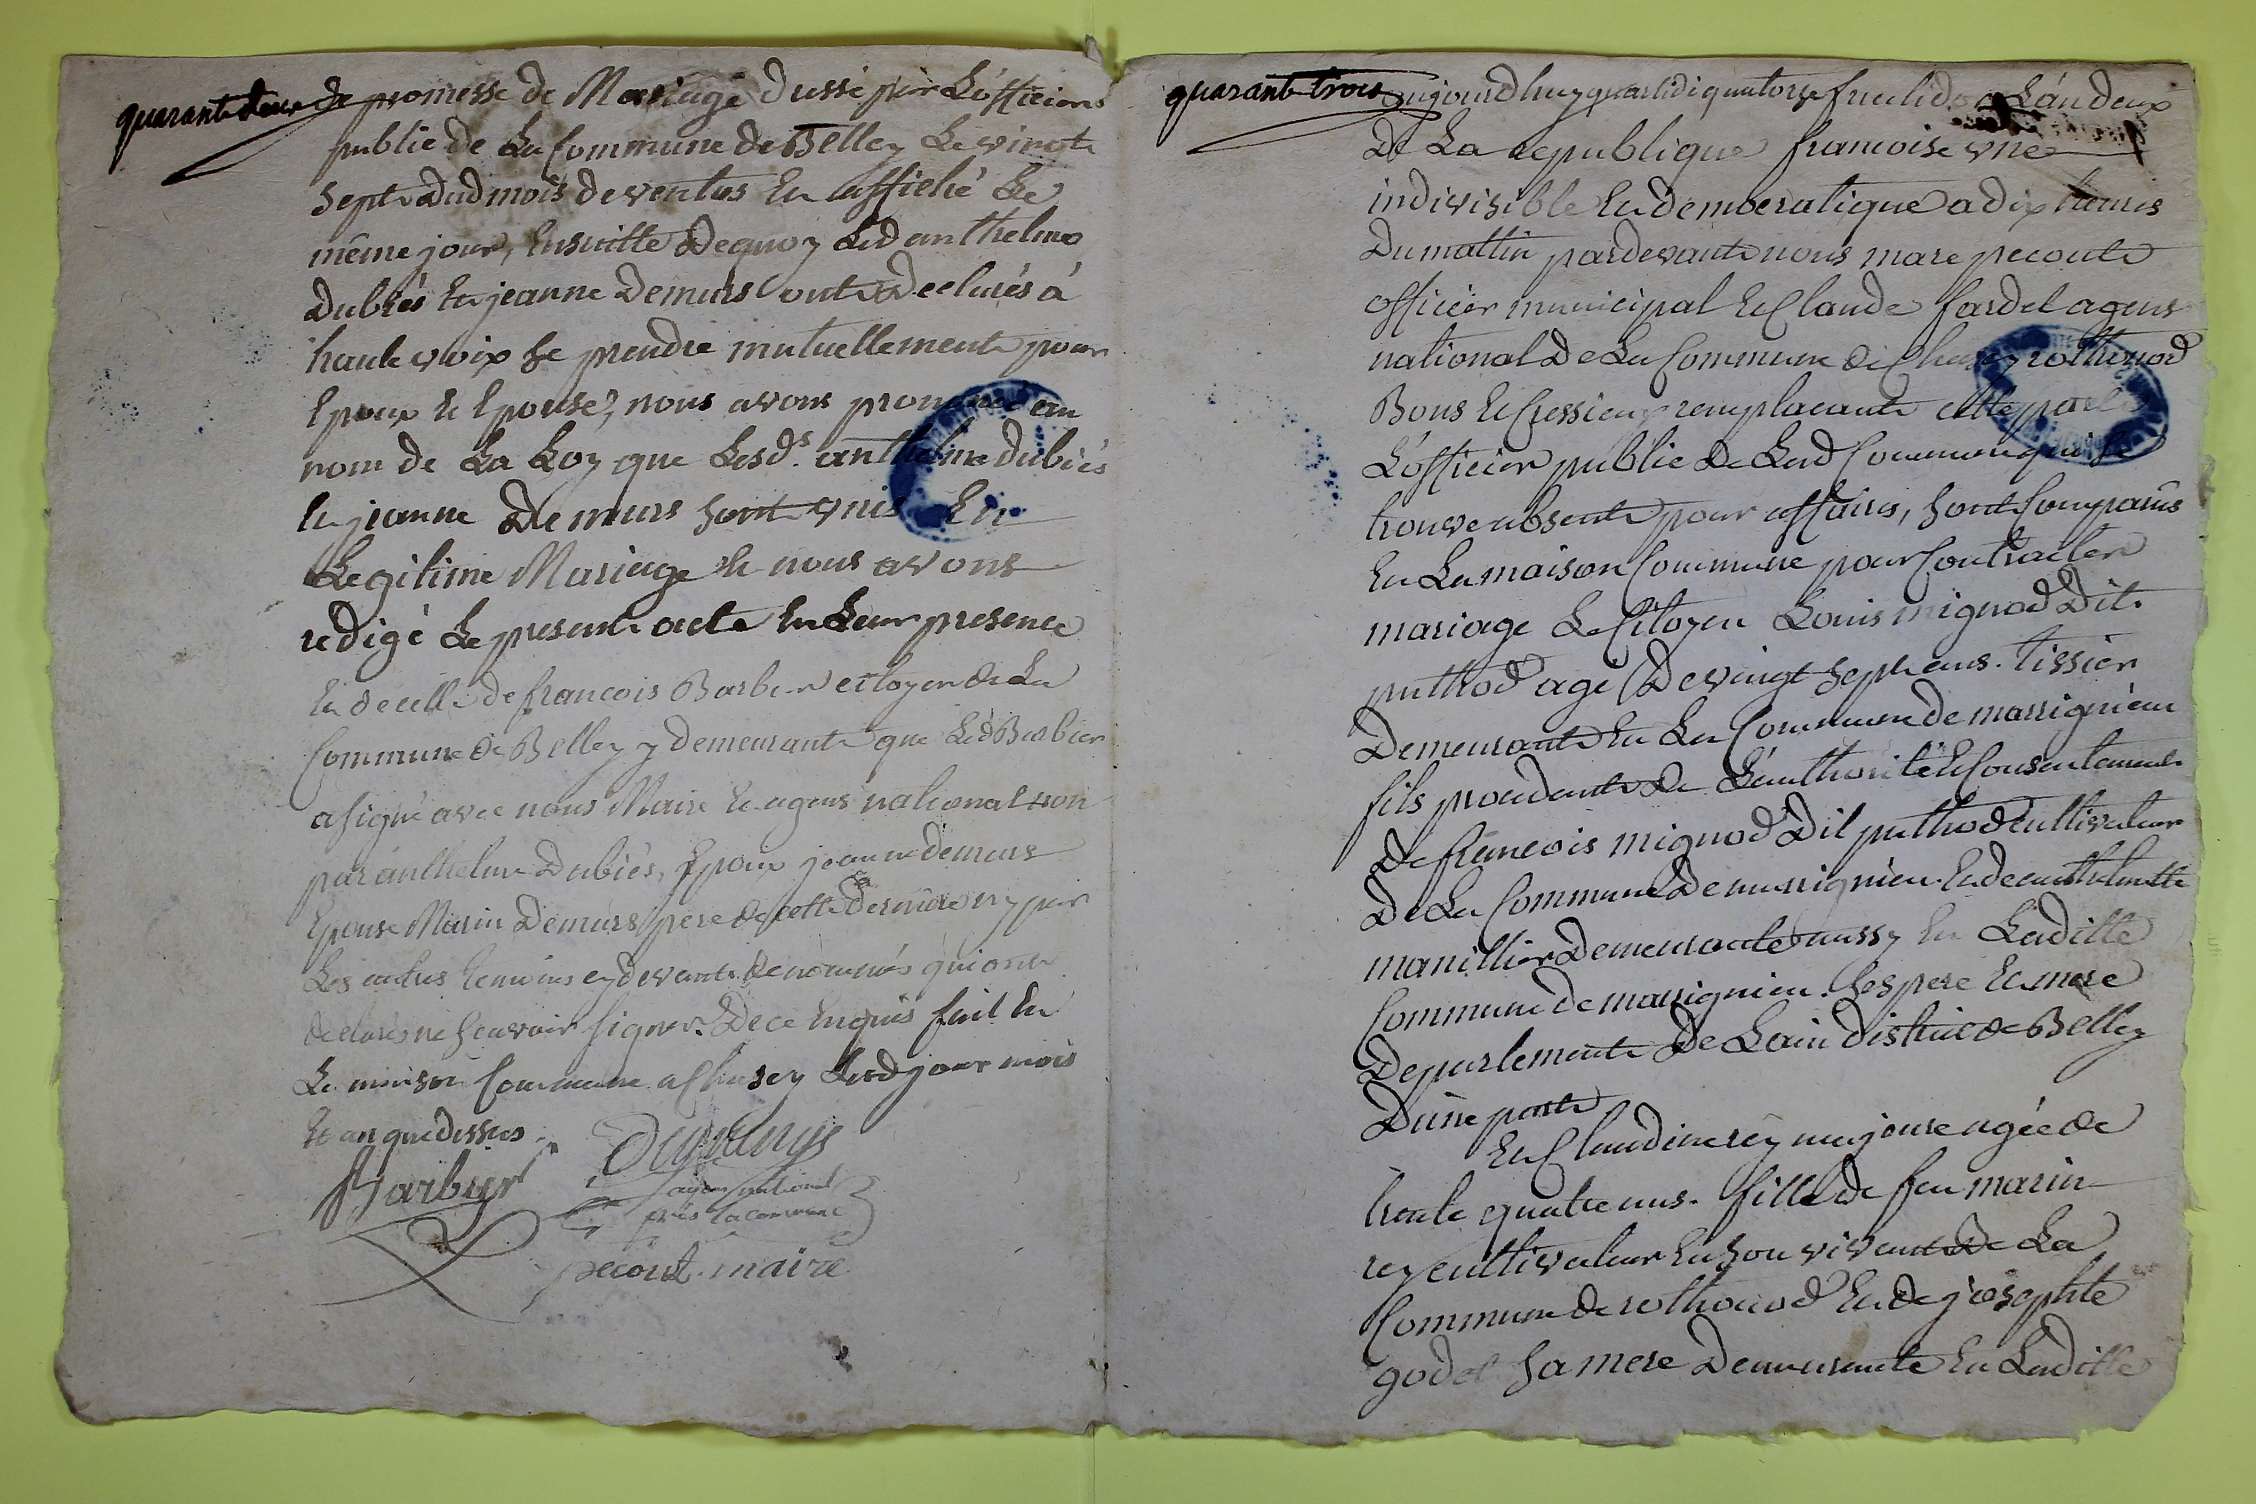 quarant deux de promesse de Mariage dressé par L'officier
public de La Commune de Belley Le vingt
sept dud mois de ventos Et affiché Le
même jour, Ensuitte De quoy Led anthelme
Dubiés Et jeanne Demurs ont Declarés à
haute voix se prendre mutuellement pour
Epoux et Epouse, nous avons prononcé au
nom de La Loy que Lesds. anthelme dubiés
Et jeanne Demurs sont unis En
Legitime Mariage Et nous avons
redigé Le present acte En Leur presence
Et de celle de francois Barbier citoyen de La
Commune de Belley y demeurant que Led Barbier
a signé avec nous Maire Et agent national non
par anthelme Dubiés, Epoux jeanne demurs
Epouse Marin Demurs pere de cette derniere ny par
Les autres temoins cydevant denommés qui ont
declarés ne scavoir signer De ce Enquis fait En
La maison Commune a Chasey Led jour mois
Et an que dessus
Barbier
agent national
près la commune
pecout maire
quarant trois aujourdhuy quartidi quatorze L'an deux
De La republique francoise une
indivisible Et democratique a dix heures
Du mattin pardevant nous marc pecout
officier municipal Et Claude fardel agent
national De La Commune de Chasey rothonod
Bons Et Cressieux remplacant
L'officier public De Lad Commune qui se
trouve absent pour affaires, sont Comparus
En La maison Commune pour Contracter
mariage Le Citoyen Louis mignod Dit
puthod agé De vingt sept ans. tissier
Demeurant En La Commune de massignieu
fils procedant De L'authorité Et Consentement
De francois mignod Dit puthod Cultivateur
De La Commune De massignieu Et de anthelmette
manillier Demeurante aussy En Laditte
Commune de massignieu. ses pere Et mere
Departement De Lain District de Belley
D'une part
Et Claudine rey majoure agée de
trente quatre ans. fille De feu marin
rey cultivateur En son vivant De La
Commune de rothonod Et de josephte
godet sa mere Demeurante En Laditte